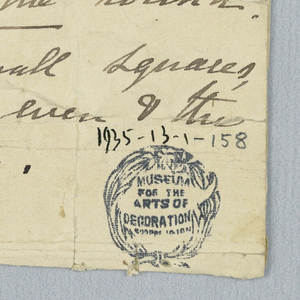 small squares,
even & the
1935-13-1-158
MUSEUM
FOR THE
ARTS OF
DECORATION
COOPER UNION